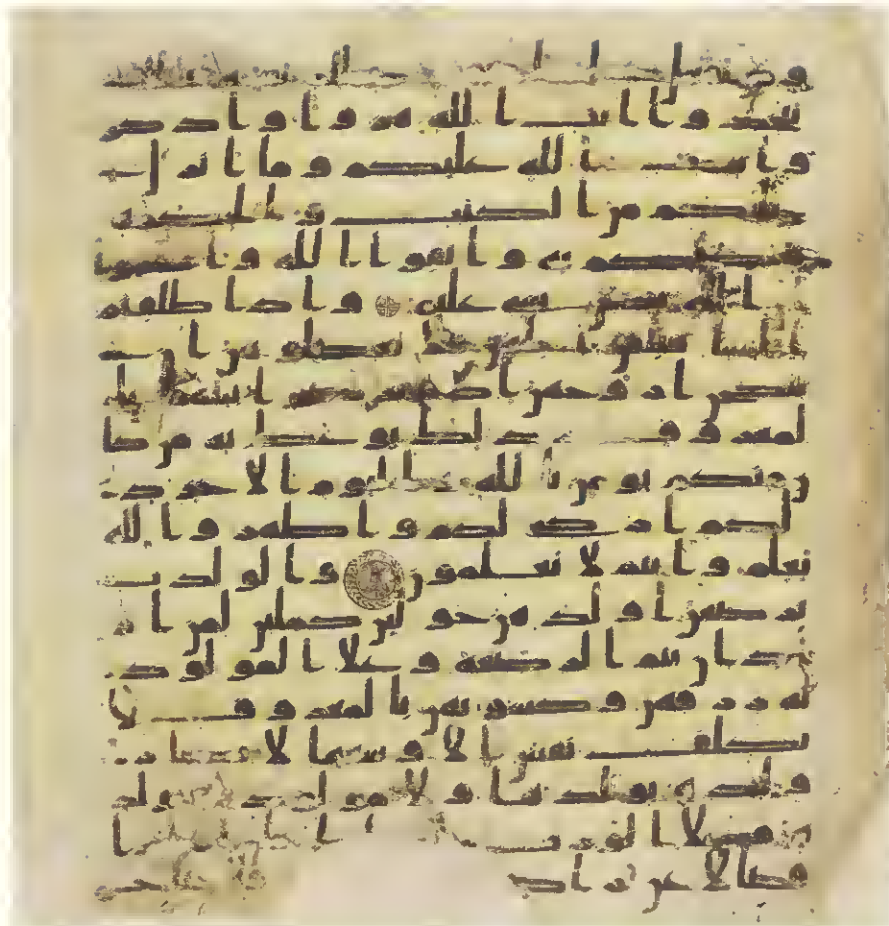 تتخذوا ايت الله هزوا واذكر
وا نعمت الله عليكم وما انزل
عليكم من الكتب والحكمه
يعظكم به واتقوا الله واعلموا
ان الله بكل شي عليم واذا طلقتم
النسا فبلغن اجلهن فلا تعضلوهن ان
ينكحن ازوجهن اذا ترضوا بينهم با
لمعروف ذلك يوعظ به من كا
ن منكم يومن بالله واليوم الاخر ذ
لكم ازكى لكم واطهر والله
يعلم وانتم لا تعلمون والولدت
يرضعن اولدهن حولين كاملين لمن ا
راد ان يتم الرضعه وعلى المولود
له رزقهن وكسوتهن بالمعروف لا
تكلف نفس الا وسعها لا تضار
ولده بولدها ولا مولود له بولد
ه وعلى الوارث
فصالا عن تراض